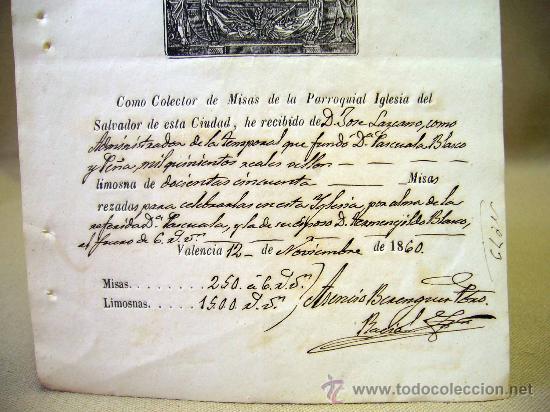 Como Colector de Misas de la Parroquial Iglesia del
Salvador de esta Ciudad, he recibido de D. Jose Lazcano, como
Administrador de la temporal que fundó Da. Pascuala Blasco
y Peña, mil quinientos reales vellon
limosna de docientas cincuenta Misas
rezadas para celebrarlas en esta Iglesia, por alma de la
referida Da. Pascuala, y la de su esposo D. Hermenegildo Blasco,
al fuero de 6. r. vn.
Valencia 12 de Noviembre de 1860.
Misas. . . . . . . . 250. á 6. r. vn.
Limosnas. . . . . 1500 r. vn.
Asencio Berenguer Pbro.
www.todocoleccion.net